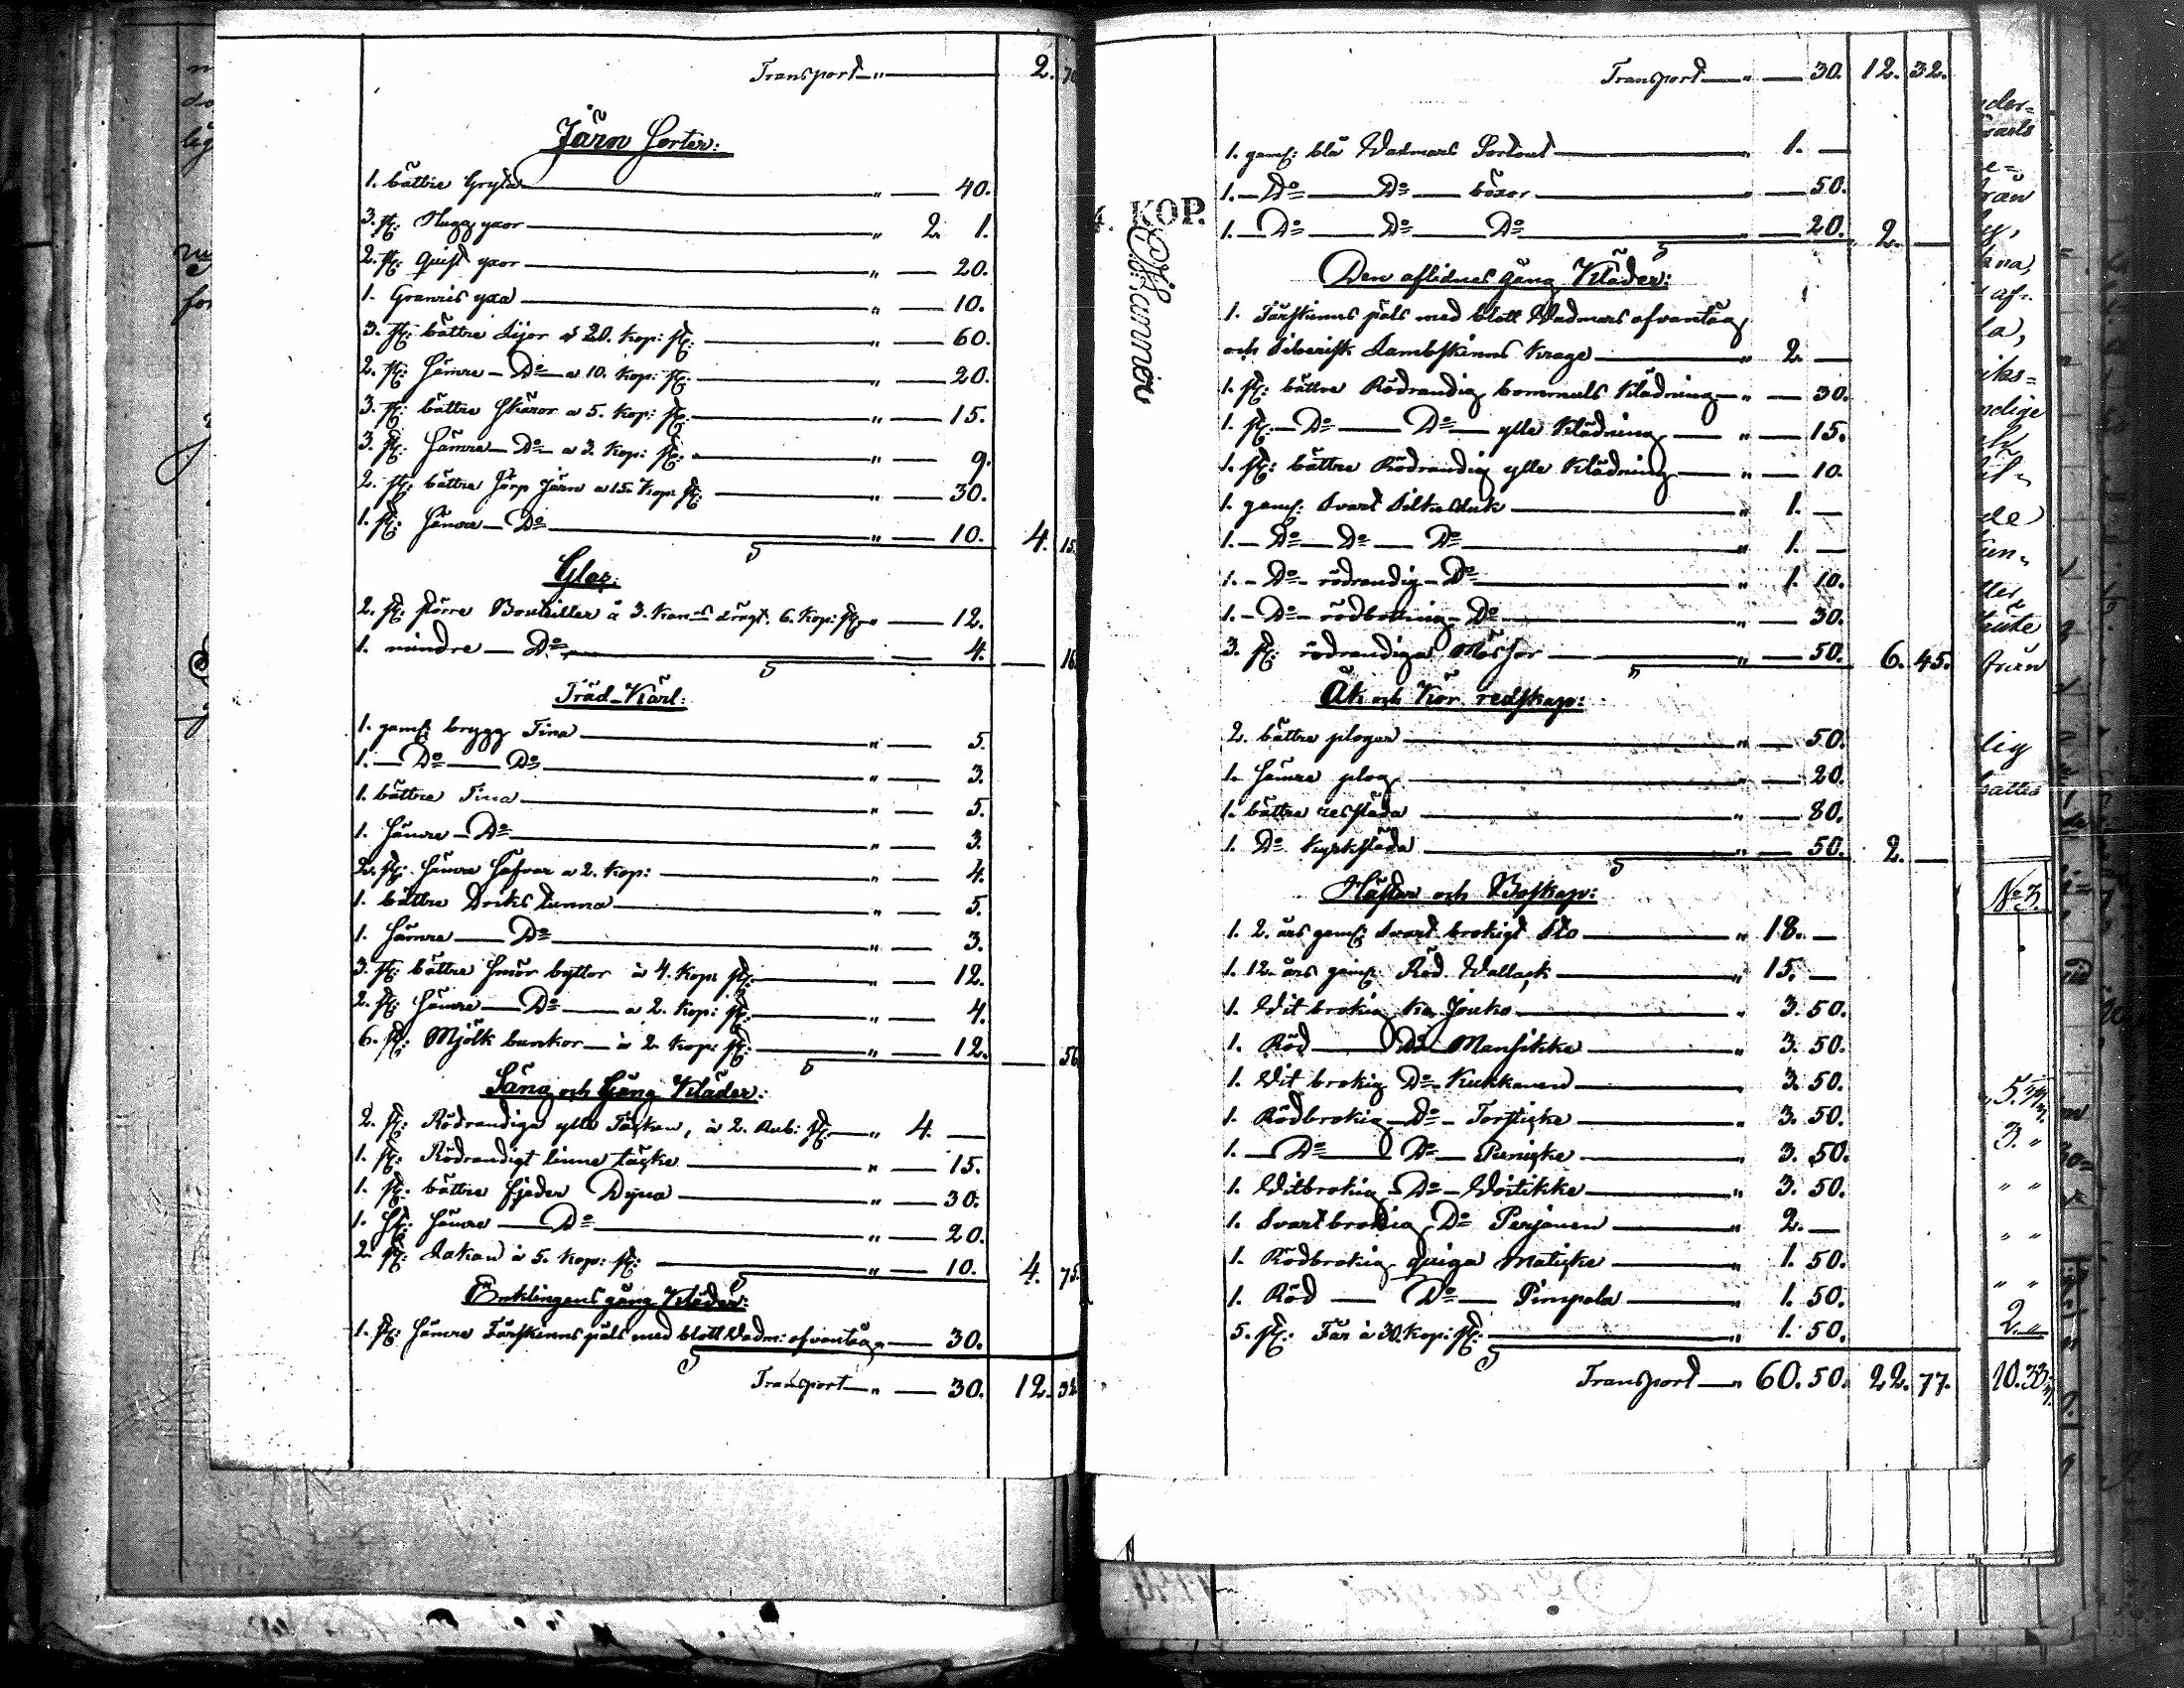 Transport — " — 2. 70
Järn Sorter:
1. bättre Gryta — " — 40.
3. st: Hugg yxor — " 2. 1.
2. st: quist yxor — " — 20.
1. Granris yxa — " — 10.
3. st: bättre Lijor à 20. Kop: st: — " — 60.
2. st: sämre — Do — a 10. Kop: st: — " — 20.
3. st: bättre Skäror a 5. Kop: st: — " — 15.
3. st: sämre — Do — a 3. Kop: st: — " — 9.
2. st: bättre Järn a 15. Kop: st: — " — 30.
1. st: sämre — Do — " — 10. 4. 15.
Glas:
2. st: större Bouteiller à 3. Kan:s drygt. 6. Kop: st: " — 12.
1. mindre — Do — 4. — 16.
Träd-Kärl:
1. gam: brygg Tina — " — 5.
1. — Do — Do — " — 3.
1. bättre Tina — " — 5.
1. sämre — Do — " — 3.
2. st: sämre Såfvar a 2. Kop: — " — 4.
1. bättre Dricks tunna — " — 5.
1. sämre — Do — " — 3.
3. st: bättre Smör byttor à 4. Kop: st: — " — 12.
2. st: sämre — Do — a 2. Kop: st: — " — 4.
6. st: Mjölk bunkor — à 2. Kop: st: — " — 12. — 56
Säng och Gång Kläder:
2. st: Rödrandiga ylle Täcken, à 2. Rub: st: — " 4. —
1. st: Rödrandigt linne täcke — " — 15.
1. st: bättre fjeder Dyna — " — 30.
1. st: sämre — Do — " — 20.
2. st: Lakan à 5. Kop: st: — " — 10. 4. 75.
Enklingens gång Kläder:
1. st: sämre Fårskinns päls med blott Vadm: ofvantåg " — 30.
Transport — " — 30. 12. 32
Transport — " — 30. 12. 32.
1. gam: blå Wadmars Sortout — " 1. —
1. — Do — Do — böxor — " — 50.
1. — Do — Do — Do — " — 20. 2. —
4. KOP.
Den aflidnes gång Kläder:
1. Fårskinns päls med blott Wadmars ofvantåg
och Siberisk Lambskinns Krage — " 2. —
1. st: bättre Rödrandig bommuls Klädning — " — 30.
1. st: — Do — Do — ylle Klädning — " — 15.
1. st: bättre Rödrandig ylle Klädning — " — 10.
1. gam: Svart Silkesduk — " 1. —
1. — Do — Do — Do — " 1. —
1. — Do — rödrandig — Do — " 1. 10.
1. — Do — rödbottnig — Do — " — 30.
3. st: rödrandiga Mössor — " — 50. 6. 45.
Åk och Kör redskap:
2. bättre plogar — " — 50.
1. sämre plog — " — 20.
1. bättre ressläda — " — 80.
1. Do Kyrksläda — " — 50. 2. —
Hästar och Boskap:
1. 2. års gam: Svart brokigt Sto — " 18. —
1. 12. års gam: Röd Wallack — " 15. —
1. Vit brokig Ko Jouko — " 3. 50.
1. Röd — Do Mansikke — " 3. 50.
1. Vit brokig Do — Kukkanen — " 3. 50.
1. Rödbrokig — Do — Torsticke — " 3. 50.
1. — Do — Do — Penicke — " 3. 50.
1. Vitbrokig — Do — Woitikke — " 3. 50.
1. Svartbrokig — Do Perjanen — " 2. —
1. Rödbrokig quiga Maticke — " 1. 50.
1. Röd — Do — Pimpola — " 1. 50.
5. st: Får à 30. Kop: st: — " 1. 50.
Transport — " 60. 50. 22. 77.
No 3.